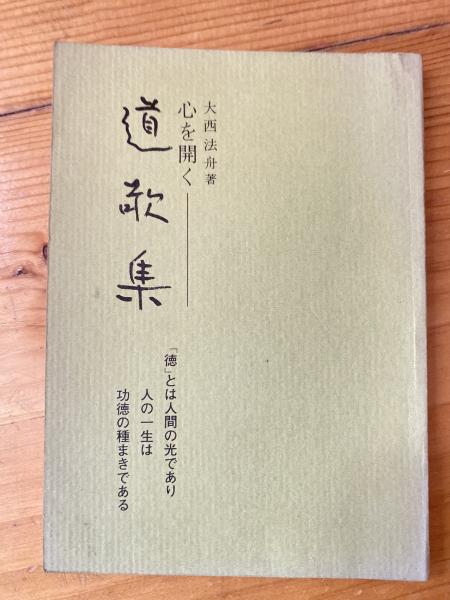 大西法舟著
心を開く――
道歌集
「徳」とは人間の光であり
人の一生は
功徳の種まきである